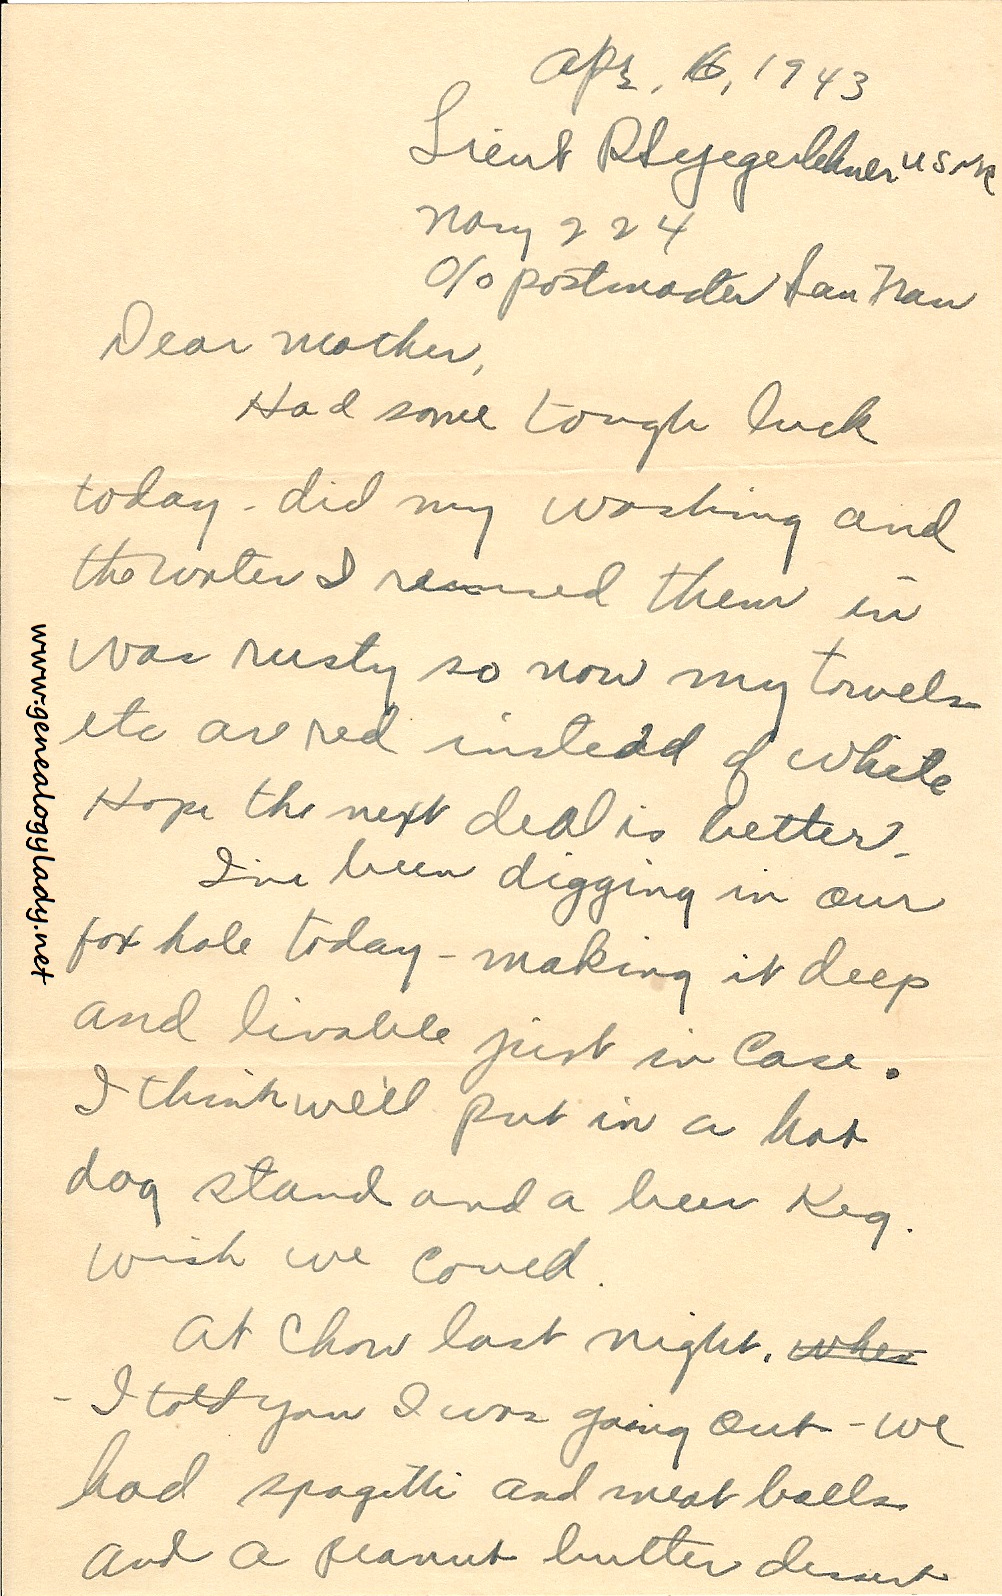 Apr. 6, 1943
Lieut R B Yegerlehner USNR
Navy 224
c/o postmaster San Fran
Dear mother,
Had some tough luck
today - did my washing and
the water I rinsed them in
was rusty so now my towels
etc are red instead of white
Hope the next deal is better.
I've been digging in our
fox hole today - making it deep
and livable just in case.
I think we'll put in a hot
dog stand and a beer keg.
wish we could.
At chow last night. when
- I told you I was going out - we
had spagetti and meat balls
and a peanut butter dessert
www.genealogylady.net